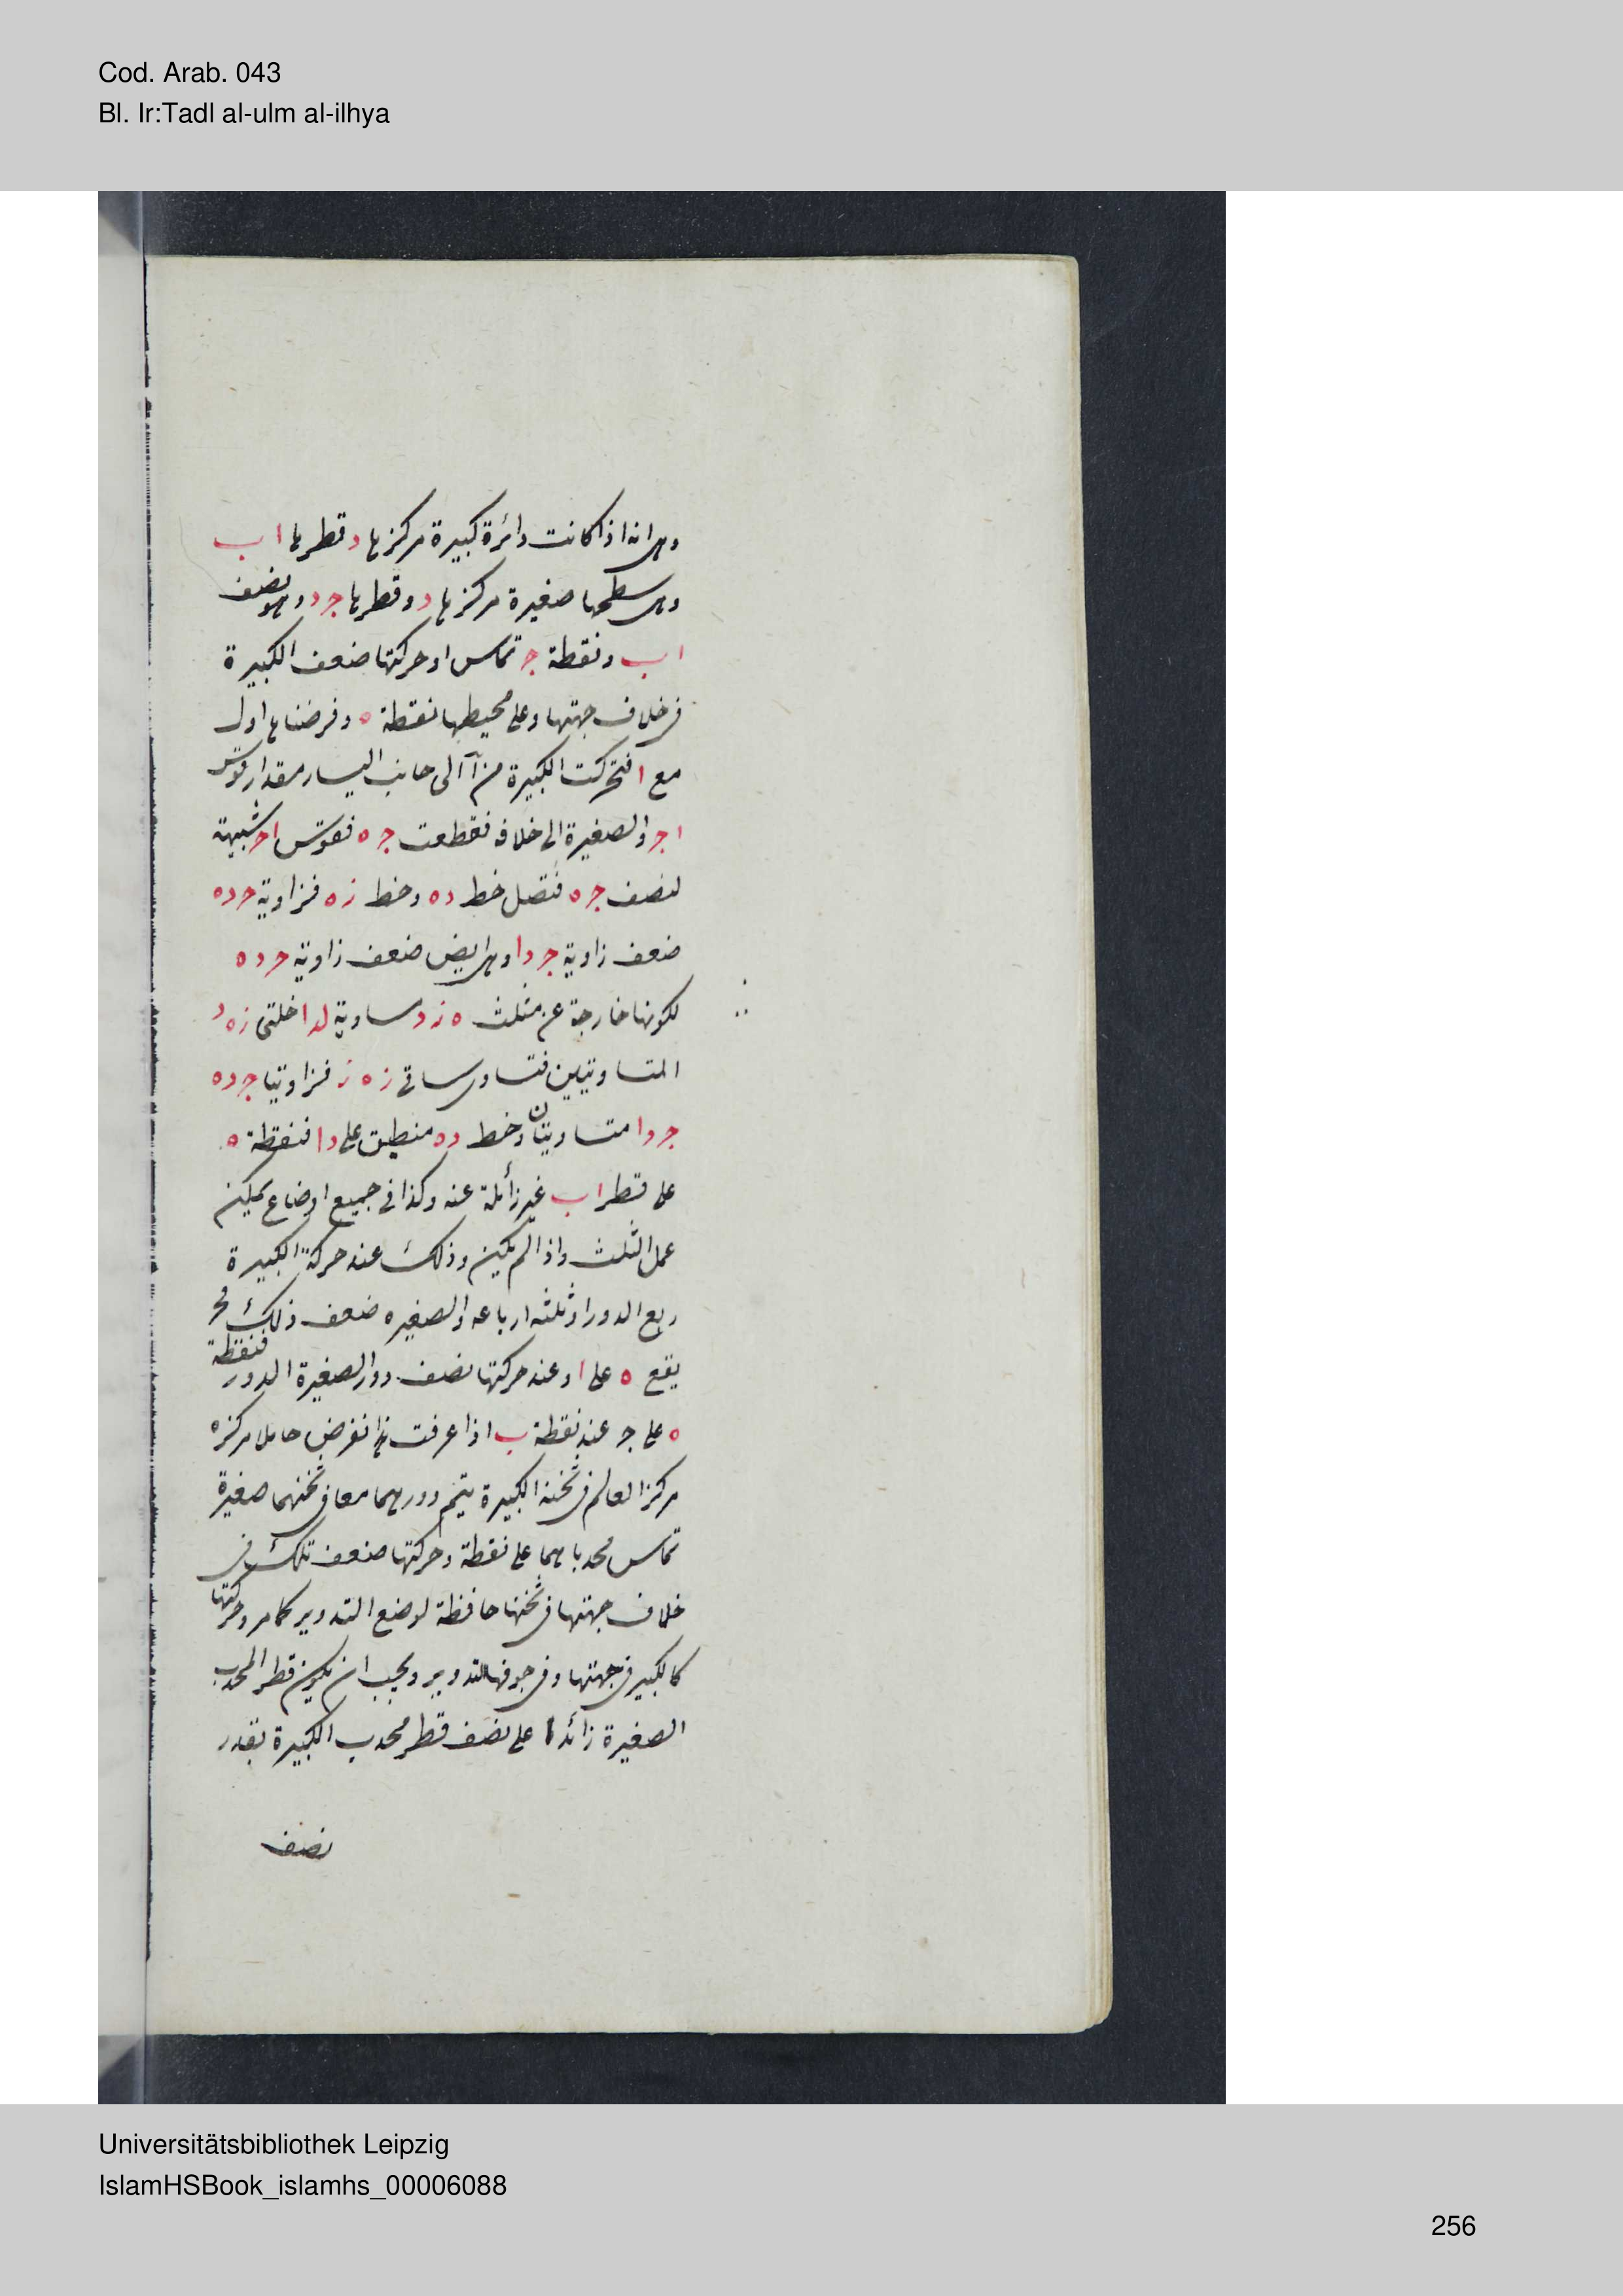 Cod. Arab. 043
Bl. Ir:Tadl al-ulm al-ilhya
وهى انه اذا كانت دائرة كبيرة مركزها د قطرها ا ب
وعلى سطحها صغيرة مركزها د وقطرها جـ د وهو نصف
ا ب ونقطة جـ تماس ا وحركتها ضعف الكبيرة
فى خلاف جهتها وعلى محيطها نقطة ه وفرضناها اول
مع ا فتحركت الكبيرة من آ الى جانب اليسار مقدار قوس
ا جـ والصغيرة الى خلاف فقطعت جـ ه فقوس ا حـ شبيهة
لنصف جـ ه فنصل خط د ه وخط ز ه فزاوية حـ د ه
ضعف زاوية جـ د ا وهى ايض ضعف زاوية حـ د ه
لكونها خارجة عن مثلث ه ز د مساوية لداخلتى ز ه د
المتساويتين فتساوى ساقى ز ه ز فزاويتا جـ د ه
جـ د ا متساويتان وخط د ه منطبق على د ا فنقطة ه
على قطر ا ب غير زائلة عنه وكذا فى جميع اوضاع يمكن
عمل المثلث واذا لم يمكن وذلك عند حركة الكبيرة
ربع الدور او ثلثه ارباعه والصغيره ضعف ذلك فح
يقع ه على ا وعند حركتها نصف دور والصغيرة الدور فنقطة
ه على جـ عند نقطة ب اذا عرفت هذا نفرض حاملا مركزه
مركز العالم فى ثخنه الكبيرة يتم دورهما معا فى ثخنهما صغيرة
تماس محدباهما على نقطة وحركتها ضعف تلك فى
خلاف جهتها فى ثخنها حافظة لوضع التدوير كما مر وحركتها
كالكبير فى جهتها وفى جوفها التدوير ويجب ان يكون قطر المحدب
الصغيرة زائدا على نصف قطر محدب الكبيرة بقدر
نصف
Universitätsbibliothek Leipzig
IslamHSBook_islamhs_00006088
256